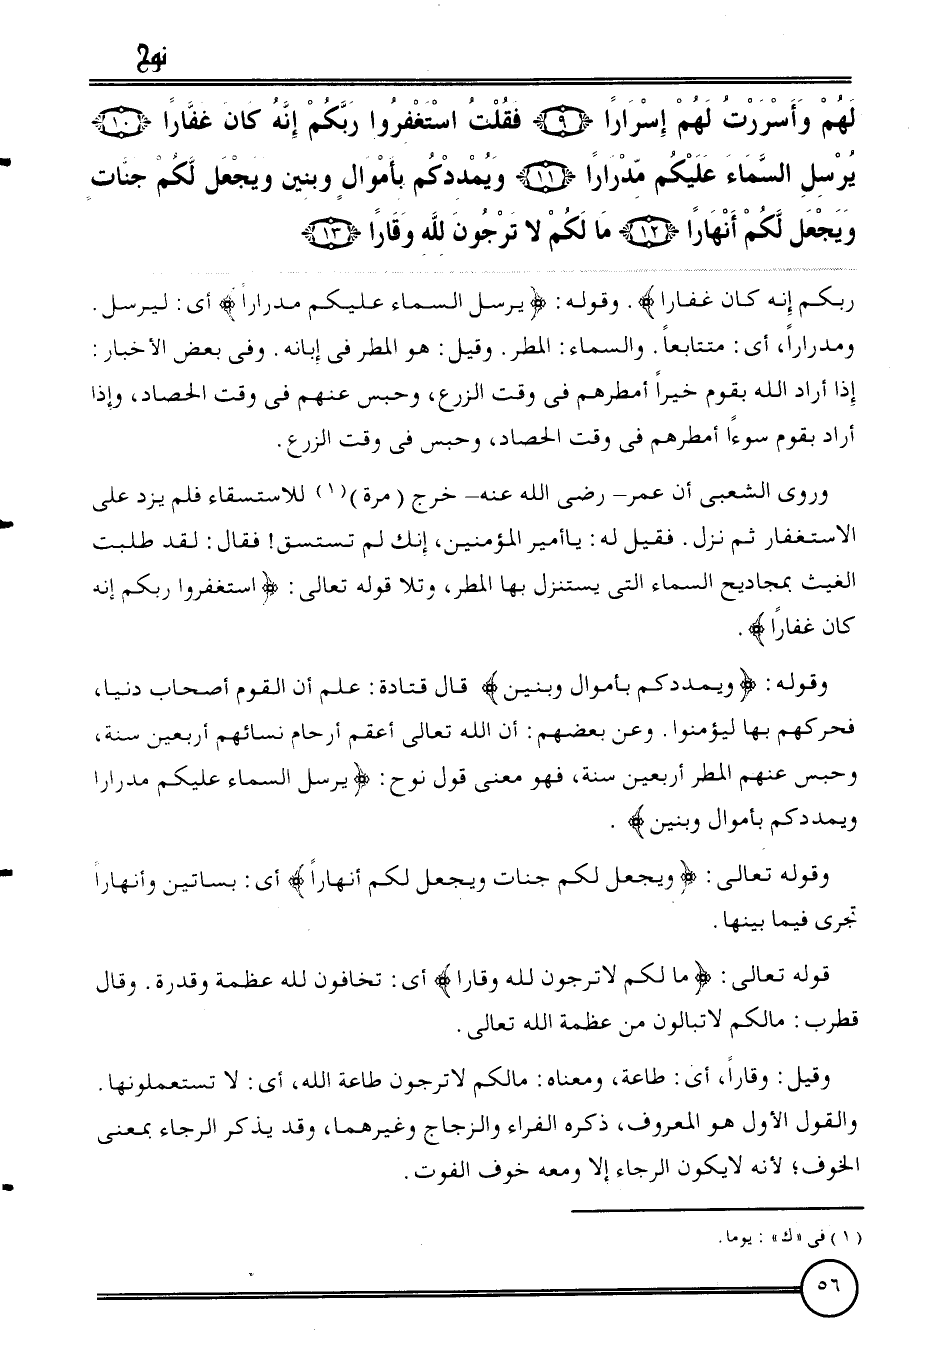 نوح
لَهُمْ وَأَسْرَرْتُ لَهُمْ إِسْرَارًا ﴿٩﴾ فَقُلْتُ اسْتَغْفِرُوا رَبَّكُمْ إِنَّهُ كَانَ غَفَّارًا ﴿١٠﴾
يُرْسِلِ السَّمَاءَ عَلَيْكُم مِّدْرَارًا ﴿١١﴾ وَيُمْدِدْكُم بِأَمْوَالٍ وبنين ويَجْعَل لَّكُمْ جنات
وَيَجْعَل لَّكُمْ أَنْهَارًا ﴿١٢﴾ مَا لَكُمْ لا تَرْجُونَ للَّه وَقَارًا ﴿١٣﴾
ربكم إنه كان غفارا ﴾ . وقوله : ﴿ يرسل السماء عليكم مدراراً ﴾ أى : ليرسل .
ومدراراً، أى : متتابعاً . والسماء : المطر . وقيل : هو المطر فى إبانه . وفى بعض الأخبار :
إذا أراد الله بقوم خيراً أمطرهم فى وقت الزرع، وحبس عنهم فى وقت الحصاد، وإذا
أراد بقوم سوءًا أمطرهم فى وقت الحصاد، وحبس فى وقت الزرع .
وروى الشعبى أن عمر – رضى الله عنه – خرج ( مرة )(١) للاستسقاء فلم يزد على
الاستغفار ثم نزل . فقيل له : ياأمير المؤمنين، إنك لم تستسق! فقال : لقد طلبت
الغيث بمجاديح السماء التى يستنزل بها المطر، وتلا قوله تعالى : ﴿ استغفروا ربكم إنه
كان غفاراً ﴾ .
وقوله : ﴿ ويمددكم بأموال وبنين ﴾ قال قتادة : علم أن القوم أصحاب دنيا،
فحركهم بها ليؤمنوا . وعن بعضهم : أن الله تعالى أعقم أرحام نسائهم أربعين سنة،
وحبس عنهم المطر أربعين سنة، فهو معنى قول نوح : ﴿ يرسل السماء عليكم مدرارا
ويمددكم بأموال وبنين ﴾ .
وقوله تعالى : ﴿ ويجعل لكم جنات ويجعل لكم أنهاراً ﴾ أى : بساتين وأنهاراً
تجرى فيما بينها .
قوله تعالى : ﴿ ما لكم لاترجون لله وقارا ﴾ أى : تخافون لله عظمة وقدرة . وقال
قطرب : مالكم لاتبالون من عظمة الله تعالى .
وقيل : وقاراً، أى : طاعة، ومعناه : مالكم لاترجون طاعة الله، أى : لا تستعملونها .
والقول الأول هو المعروف، ذكره الفراء والزجاج وغيرهما، وقد يذكر الرجاء بمعنى
الخوف؛ لأنه لايكون الرجاء إلا ومعه خوف الفوت .
(١) فى «ك» : يوما .
٥٦